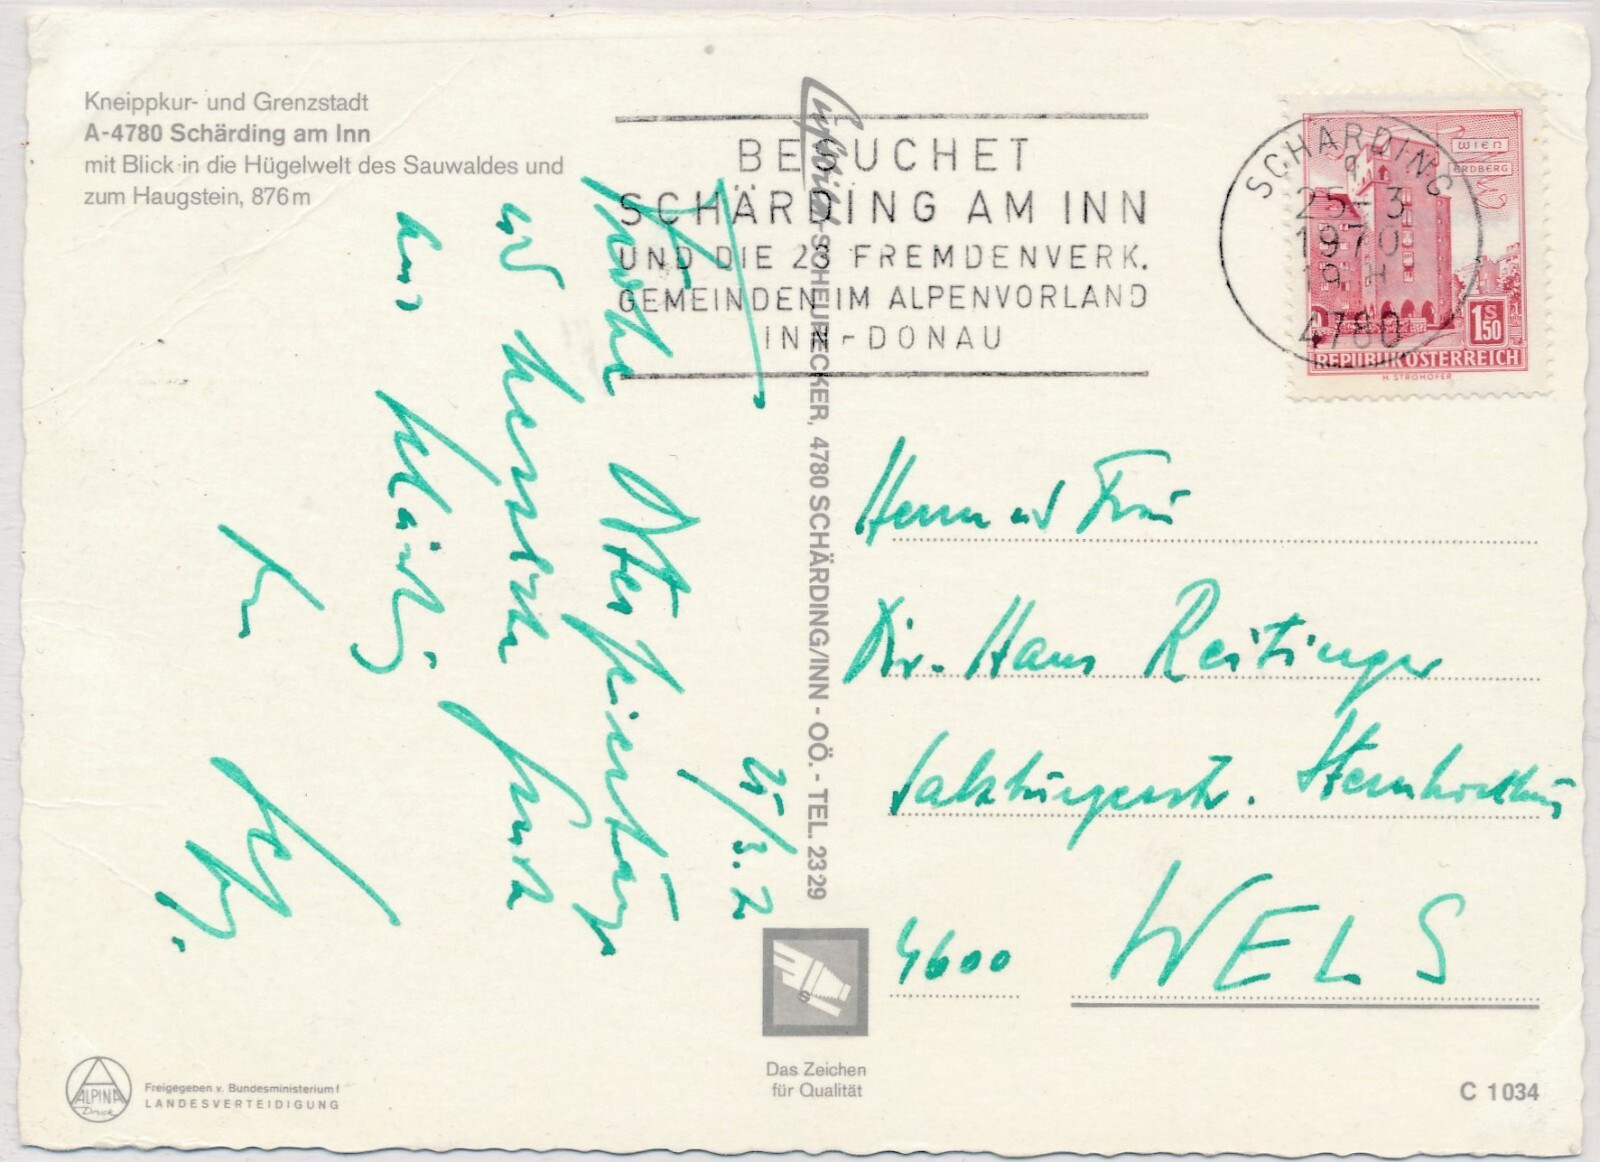 Kneippkur- und Grenzstadt
A-4780 Schärding am Inn
mit Blick in die Hügelwelt des Sauwaldes und
zum Haugstein, 876 m
BESUCHET
SCHÄRDING AM INN
UND DIE 28 FREMDENVERK.
GEMEINDEN IM ALPENVORLAND
INN-DONAU
SCHÄRDING
25-3
1970
19 H
4780
WIEN
ERDBERG
1S50
REPUBLIK ÖSTERREICH
H. STROHOFER
SCHEURECKER, 4780 SCHÄRDING/INN - OÖ. - TEL. 2329
25/3.
Osterfeiertage
und herzliche
aus Schärding
Herrn und Frau
Dir. Hans Reitinger
Salzburgerstr.
4600 WELS
Das Zeichen
für Qualität
ALPINA
Druck
Freigegeben v. Bundesministerium f
LANDESVERTEIDIGUNG
C 1034